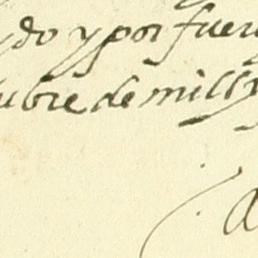 do y por fuer
ubre de mill y